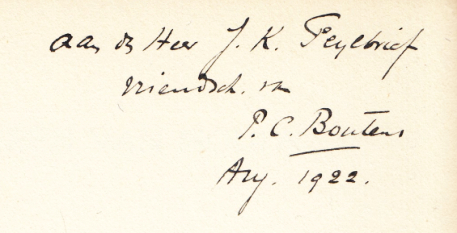 aan de Heer J. K. Peylbrief
vriendsch. van
P. C. Boutens
Aug. 1922.